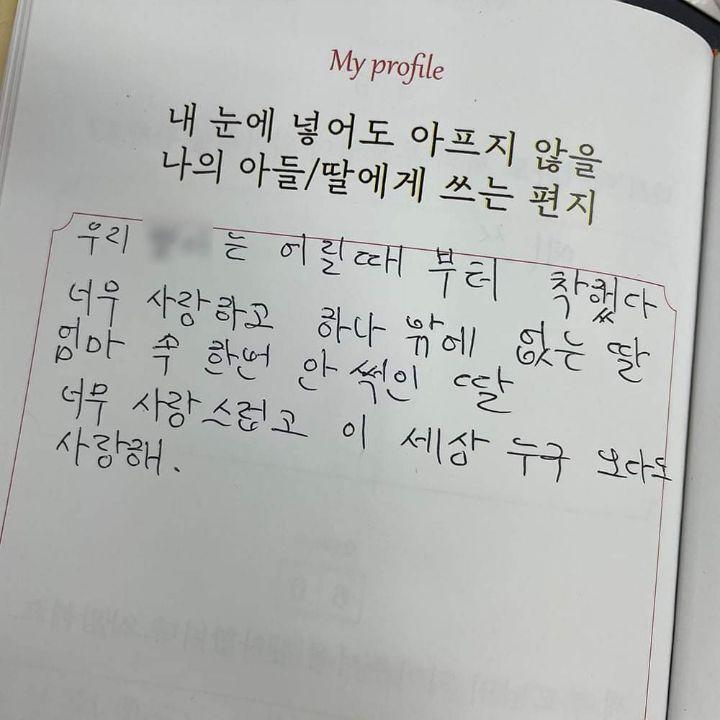 My profile
내 눈에 넣어도 아프지 않을
나의 아들/딸에게 쓰는 편지
우리 는 어릴때 부터 착했다
너무 사랑하고 하나 밖에 없는 딸
엄마 속 한번 안 썩인 딸
너무 사랑스럽고 이 세상 누구 보다도
사랑해.